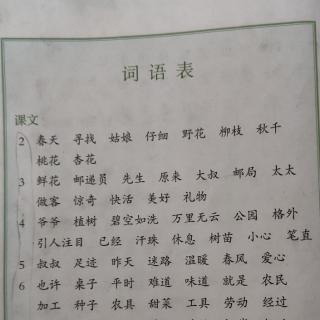 词语表
课文
2 春天 寻找 姑娘 仔细 野花 柳枝 秋千
桃花 杏花
3 鲜花 邮递员 先生 原来 大叔 邮局 太太
做客 惊奇 快活 美好 礼物
4 爷爷 植树 碧空如洗 万里无云 公园 格外
引人注目 已经 汗珠 休息 树苗 小心 笔直
5 叔叔 足迹 昨天 迷路 温暖 春风 爱心
6 也许 桌子 平时 难道 味道 就是 农民
加工 种子 农具 甜菜 工具 劳动 经过